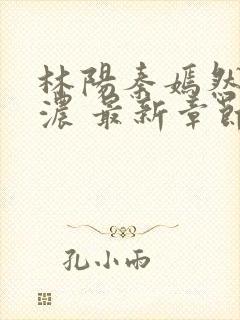 林陽秦嫣然
濃 最新章節
孔小雨